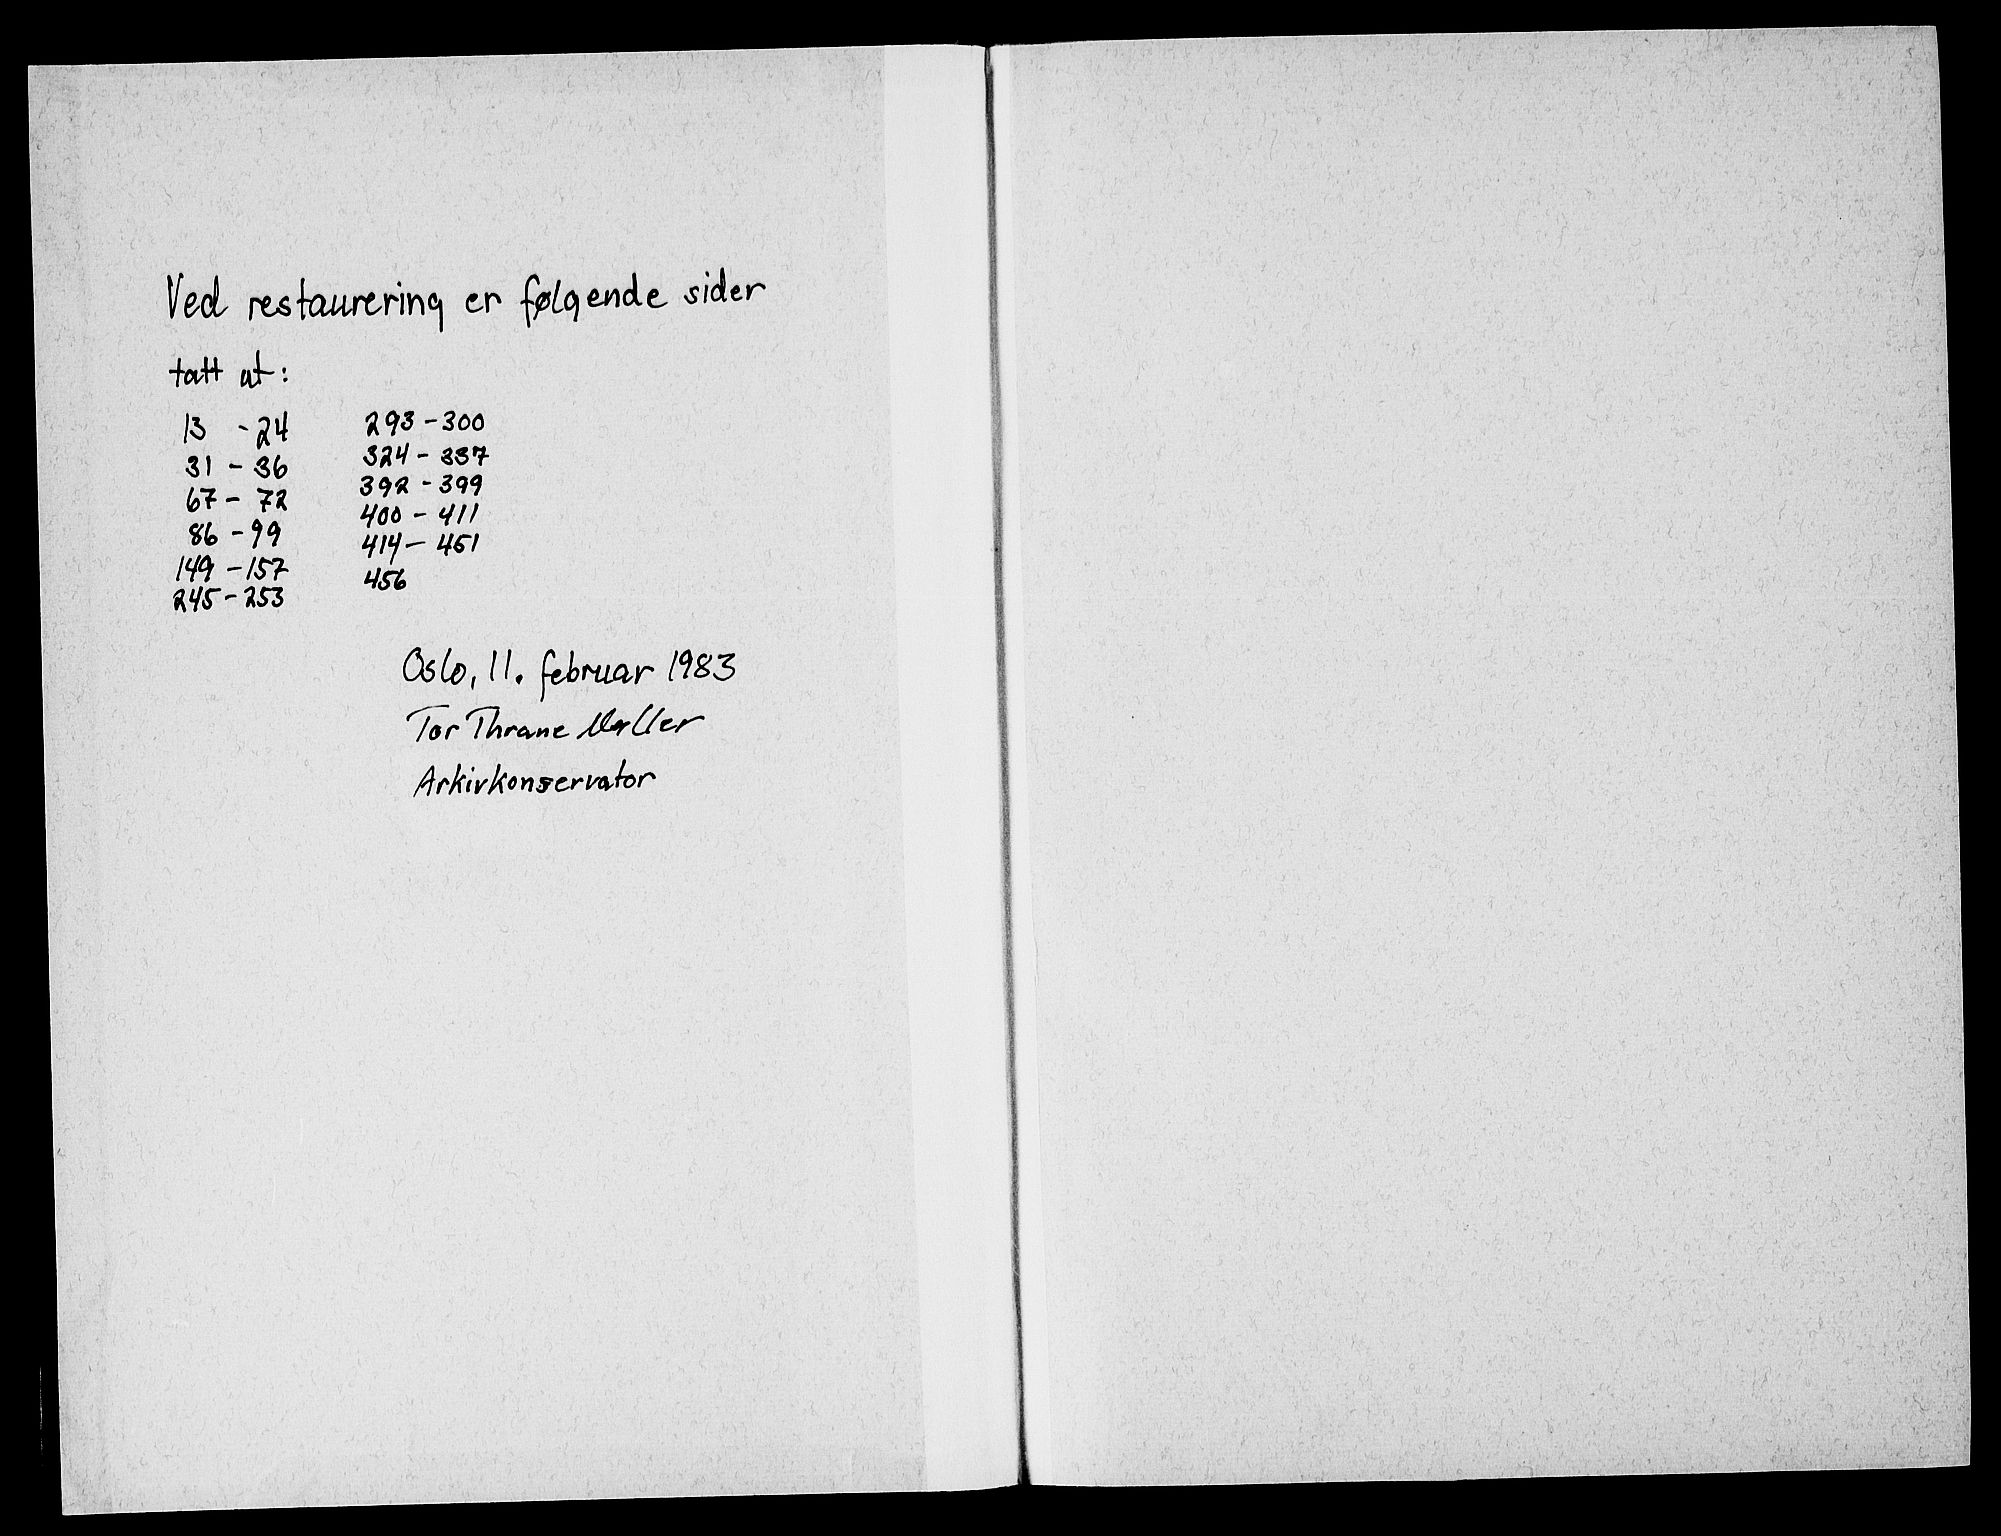 Ved restaurering er følgende sider
tatt ut:
13 - 24
31 - 36
67 - 72
86 - 99
149 - 157
245 - 253
293 - 300
324 - 337
392 - 399
400 - 411
414 - 451
456
Oslo, 11. februar 1983
Tor Thrane
Arkivkonservator